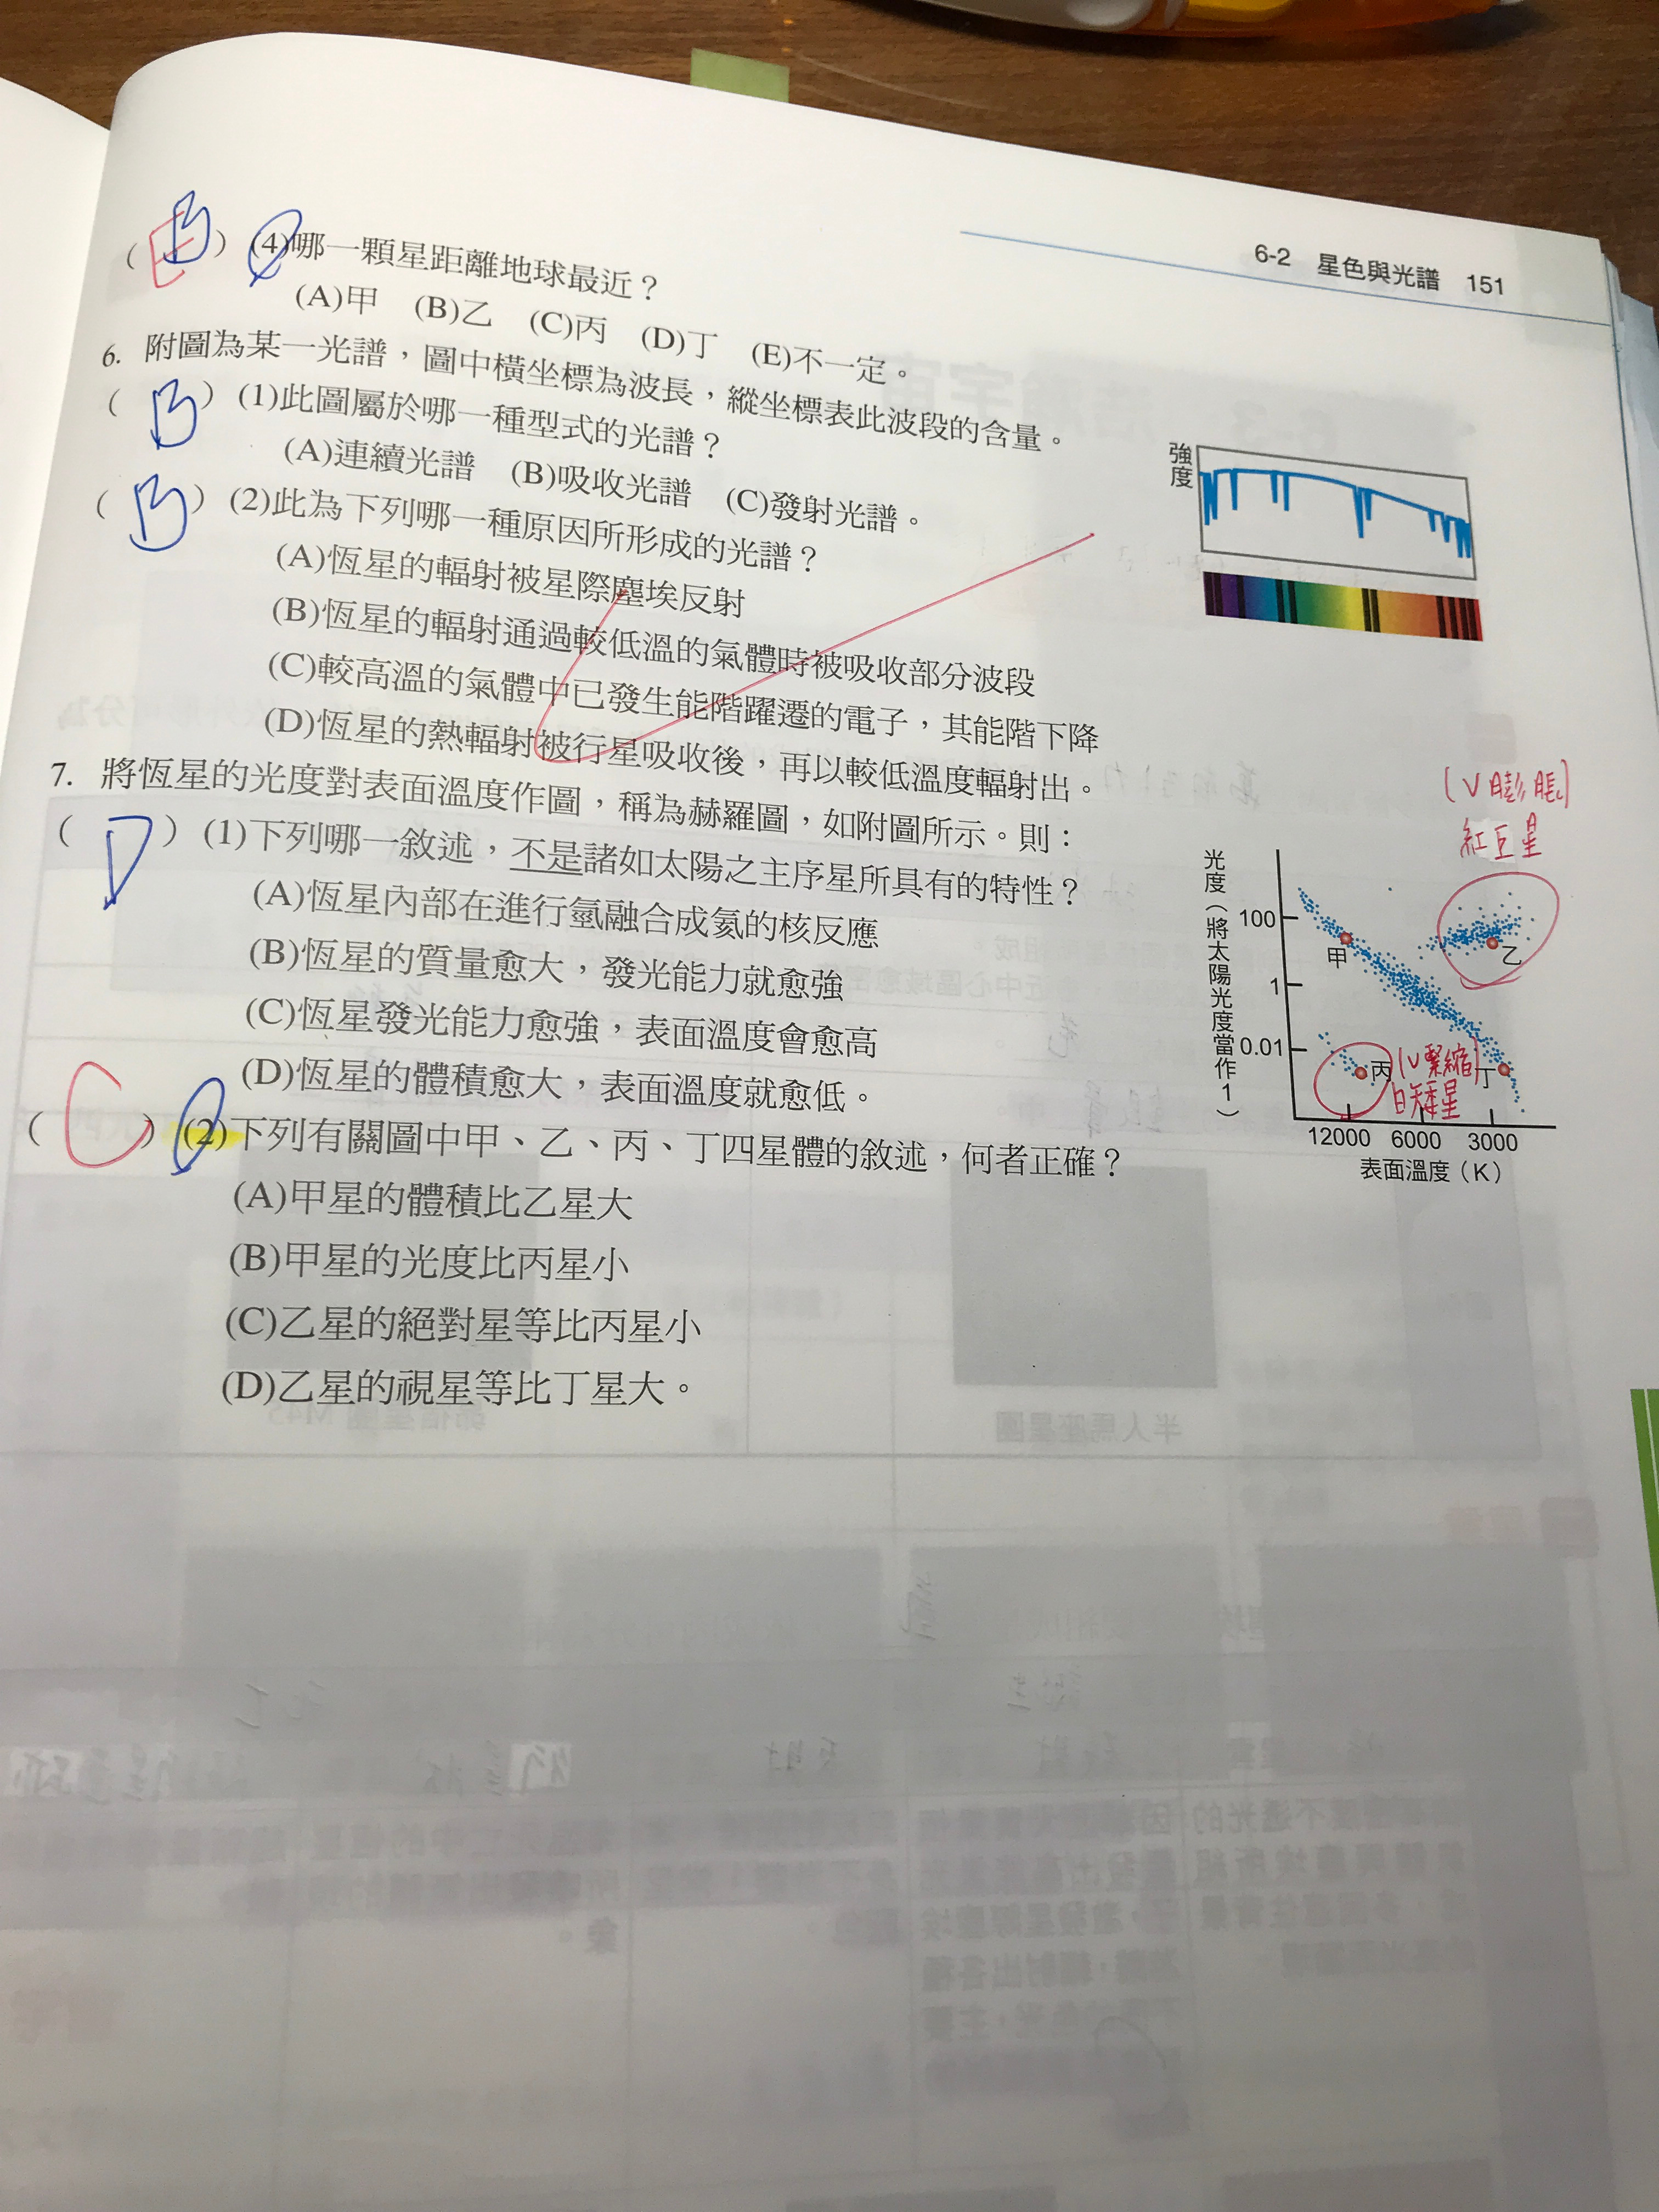 6-2 星色與光譜 151
( B E ) (4)哪一顆星距離地球最近？
(A)甲 (B)乙 (C)丙 (D)丁 (E)不一定。
6. 附圖為某一光譜，圖中橫坐標為波長，縱坐標表此波段的含量。
( B ) (1)此圖屬於哪一種型式的光譜？
(A)連續光譜 (B)吸收光譜 (C)發射光譜。
( B ) (2)此為下列哪一種原因所形成的光譜？
(A)恆星的輻射被星際塵埃反射
(B)恆星的輻射通過較低溫的氣體時被吸收部分波段
(C)較高溫的氣體中已發生能階躍遷的電子，其能階下降
(D)恆星的熱輻射被行星吸收後，再以較低溫度輻射出。
強度
7. 將恆星的光度對表面溫度作圖，稱為赫羅圖，如附圖所示。則：
( D ) (1)下列哪一敘述，不是諸如太陽之主序星所具有的特性？
(A)恆星內部在進行氫融合成氦的核反應
(B)恆星的質量愈大，發光能力就愈強
(C)恆星發光能力愈強，表面溫度會愈高
(D)恆星的體積愈大，表面溫度就愈低。
( C ) (2)下列有關圖中甲、乙、丙、丁四星體的敘述，何者正確？
(A)甲星的體積比乙星大
(B)甲星的光度比丙星小
(C)乙星的絕對星等比丙星小
(D)乙星的視星等比丁星大。
(V膨脹)
紅巨星
光度（將太陽光度當作1）
100
1
0.01
甲
乙
丙
丁
(V緊縮)
白矮星
12000 6000 3000
表面溫度（K）
半人馬座星團
昴宿星團 M45